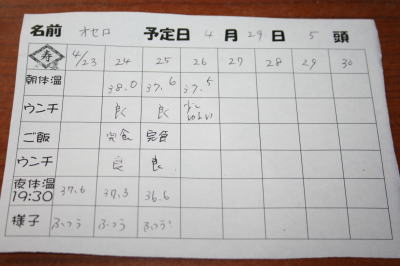 名前 オセロ 予定日 4月29日 5頭
寿 4/23 24 25 26 27 28 29 30
朝体温 38.0 37.6 37.5
ウンチ 良 良 少しゆるい
ご飯 完食 完食
ウンチ 良 良
夜体温 19:30 37.6 37.3 36.6
様子 ふつう ふつう ふつう